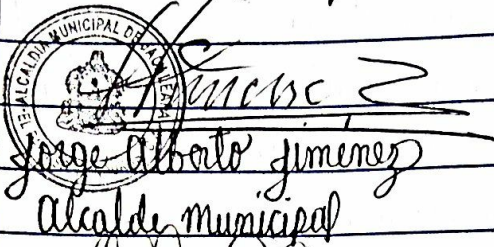 ALCALDIA MUNICIPAL DE
Jimenez
Jorge Alberto Jimenez
Alcalde Municipal